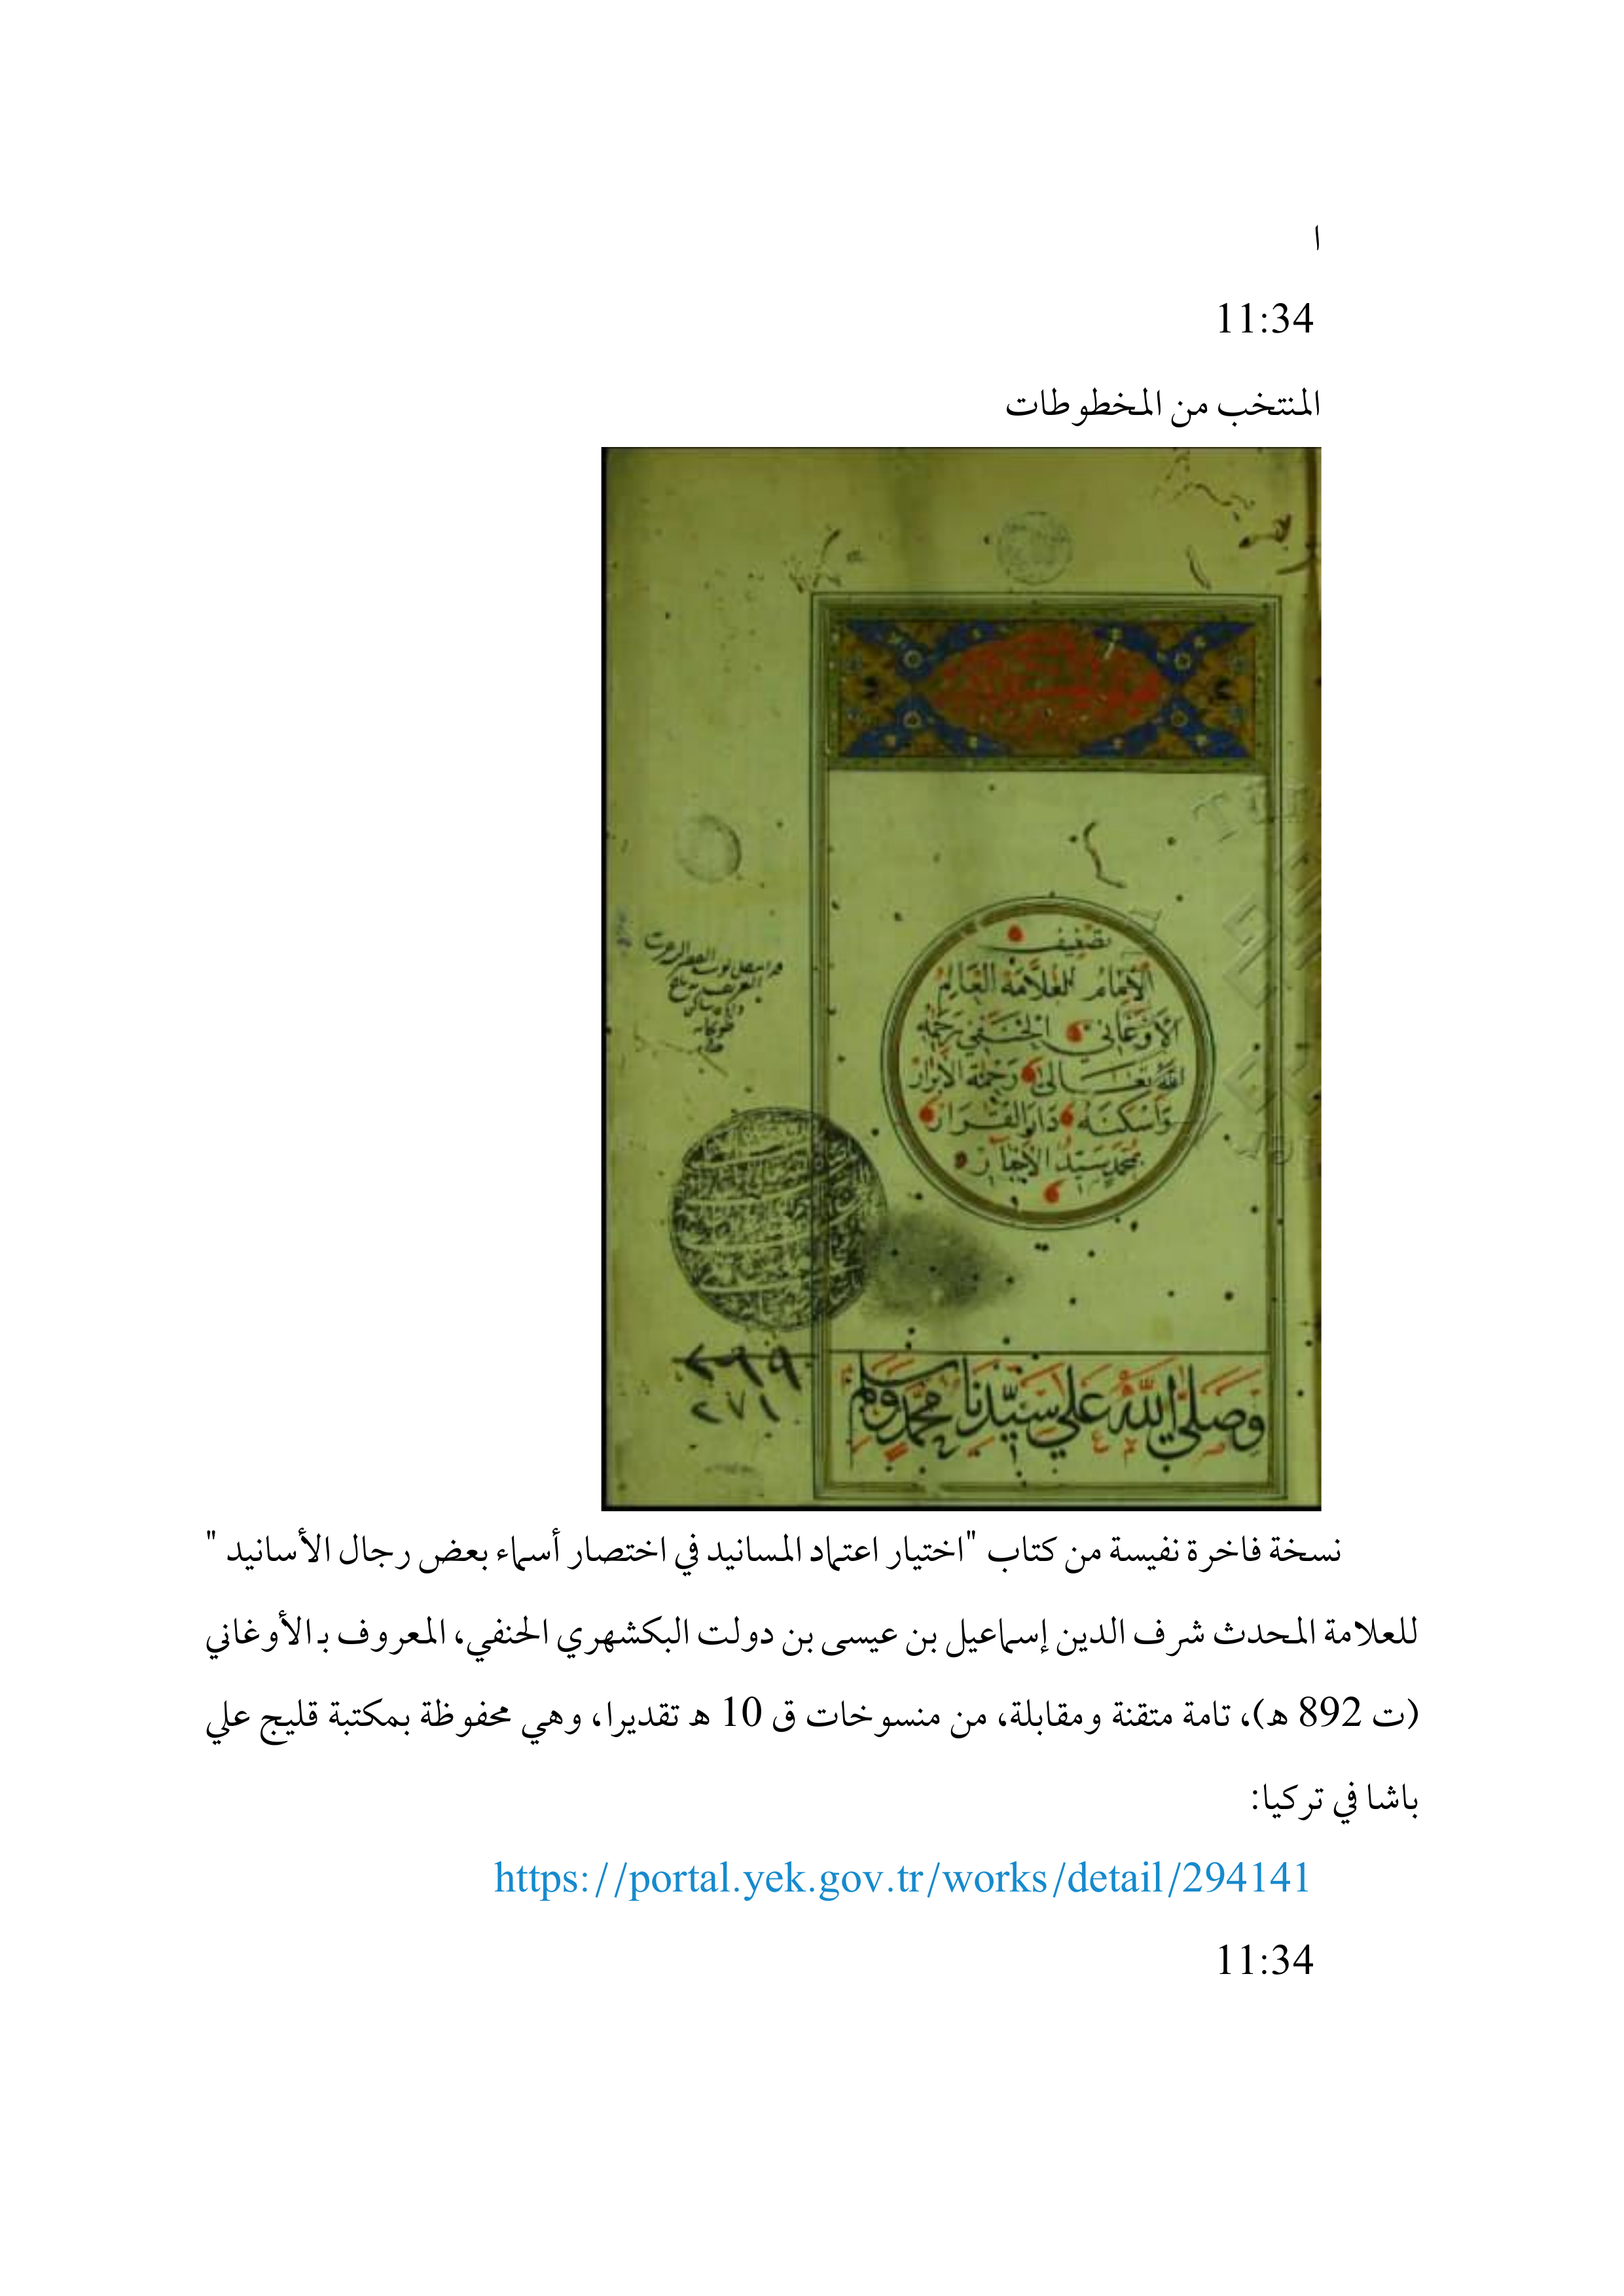 ا
11:34
المنتخب من المخطوطات
تصنيف
الإمام العلامة العالم
الأوغاني الحنفي رحمه
الله تعالى رحمة الأبرار
وأسكنه دار القرار
بمحمد سيد الأخيار
٢٦٩
٢٧١
وصلى الله على سيدنا محمد وسلم
نسخة فاخرة نفيسة من كتاب "اختيار اعتماد المسانيد في اختصار أسماء بعض رجال الأسانيد "
للعلامة المحدث شرف الدين إسماعيل بن عيسى بن دولت البكشهري الحنفي، المعروف بـ الأوغاني
(ت 892 هـ)، تامة متقنة ومقابلة، من منسوخات ق 10 هـ تقديرا، وهي محفوظة بمكتبة قليج علي
باشا في تركيا:
https://portal.yek.gov.tr/works/detail/294141
11:34